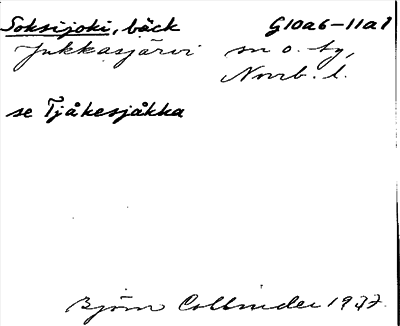 Soksijoki, bäck G10a6-11a1
Jukkasjärvi sn o. by,
Norrb. l.
se Tjåkesjåkka
Björn Collinder 1937.